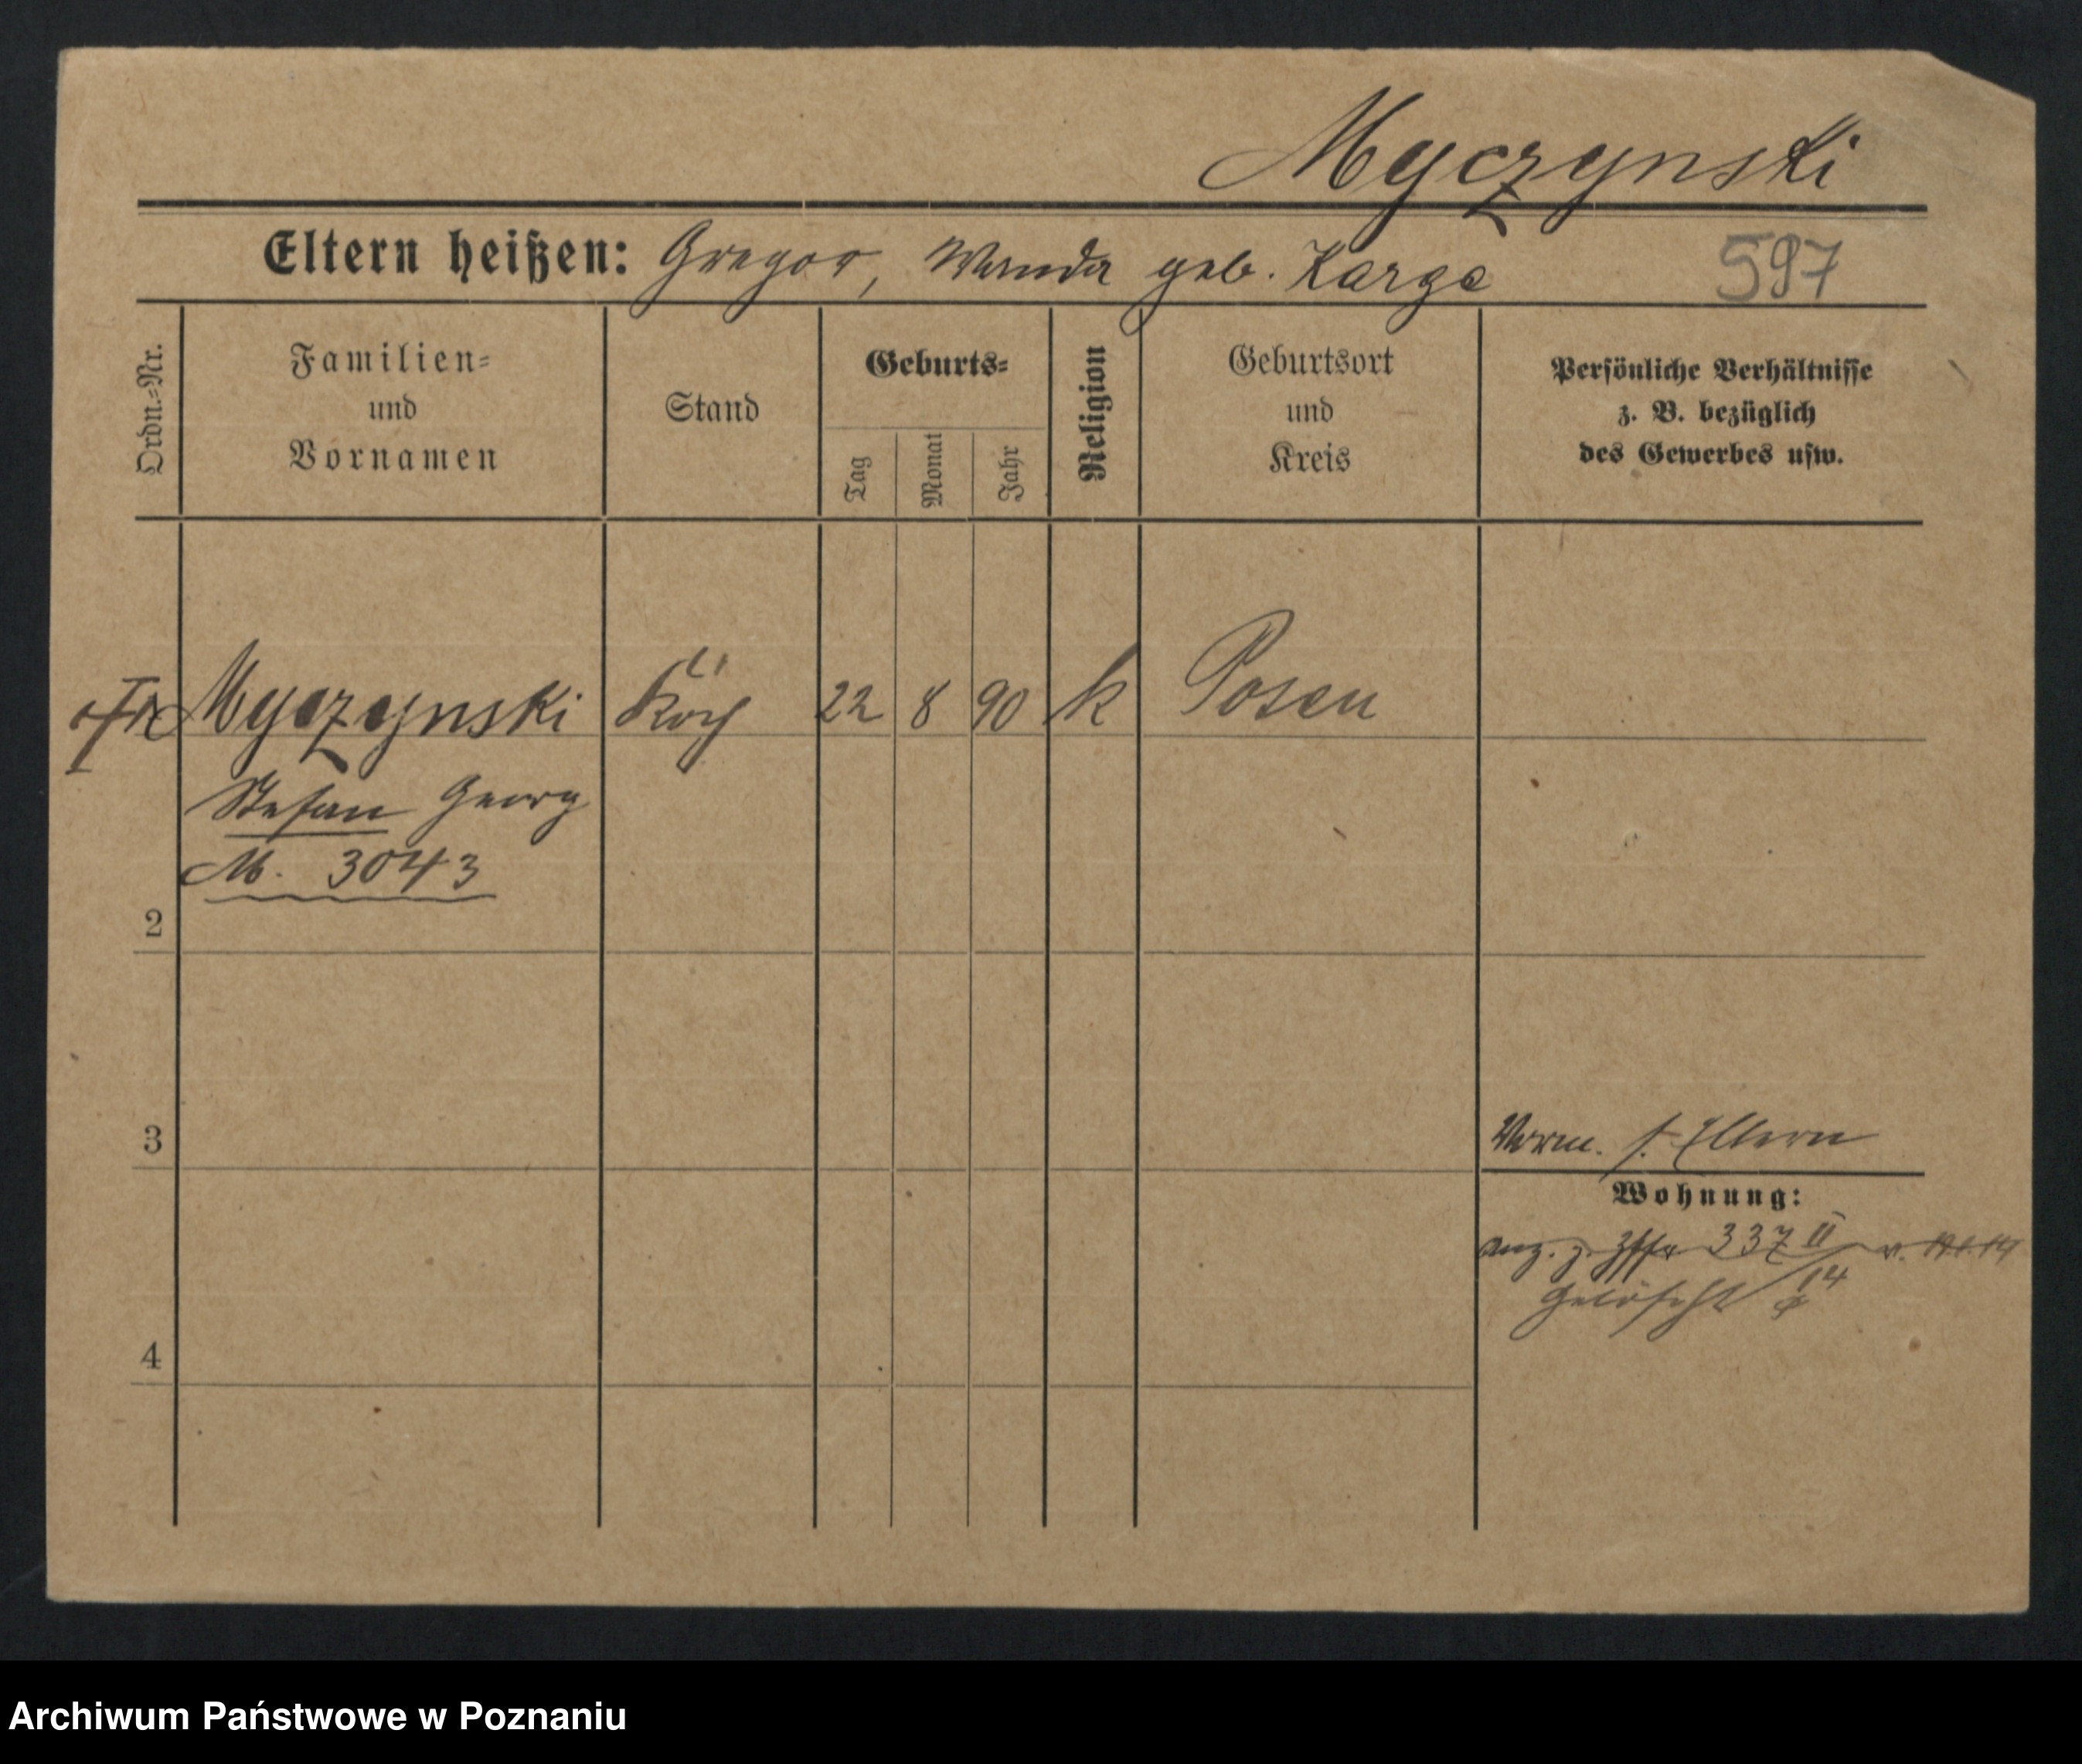 Myczynski
Eltern heißen: Gregor, Wanda geb. Karge 597
Ordn.-Nr.
Familien-
und
Vornamen
Stand
Geburts-
Tag
Monat
Jahr
Religion
Geburtsort
und
Kreis
Persönliche Verhältnisse
z. B. bezüglich
des Gewerbes usw.
Myczynski Koch 22 8 90 k Posen
Stefan Georg
M. 3043
2
3
Verm. s. Eltern
Wohnung:
337 II
Gelöscht 14
4
Archiwum Państwowe w Poznaniu